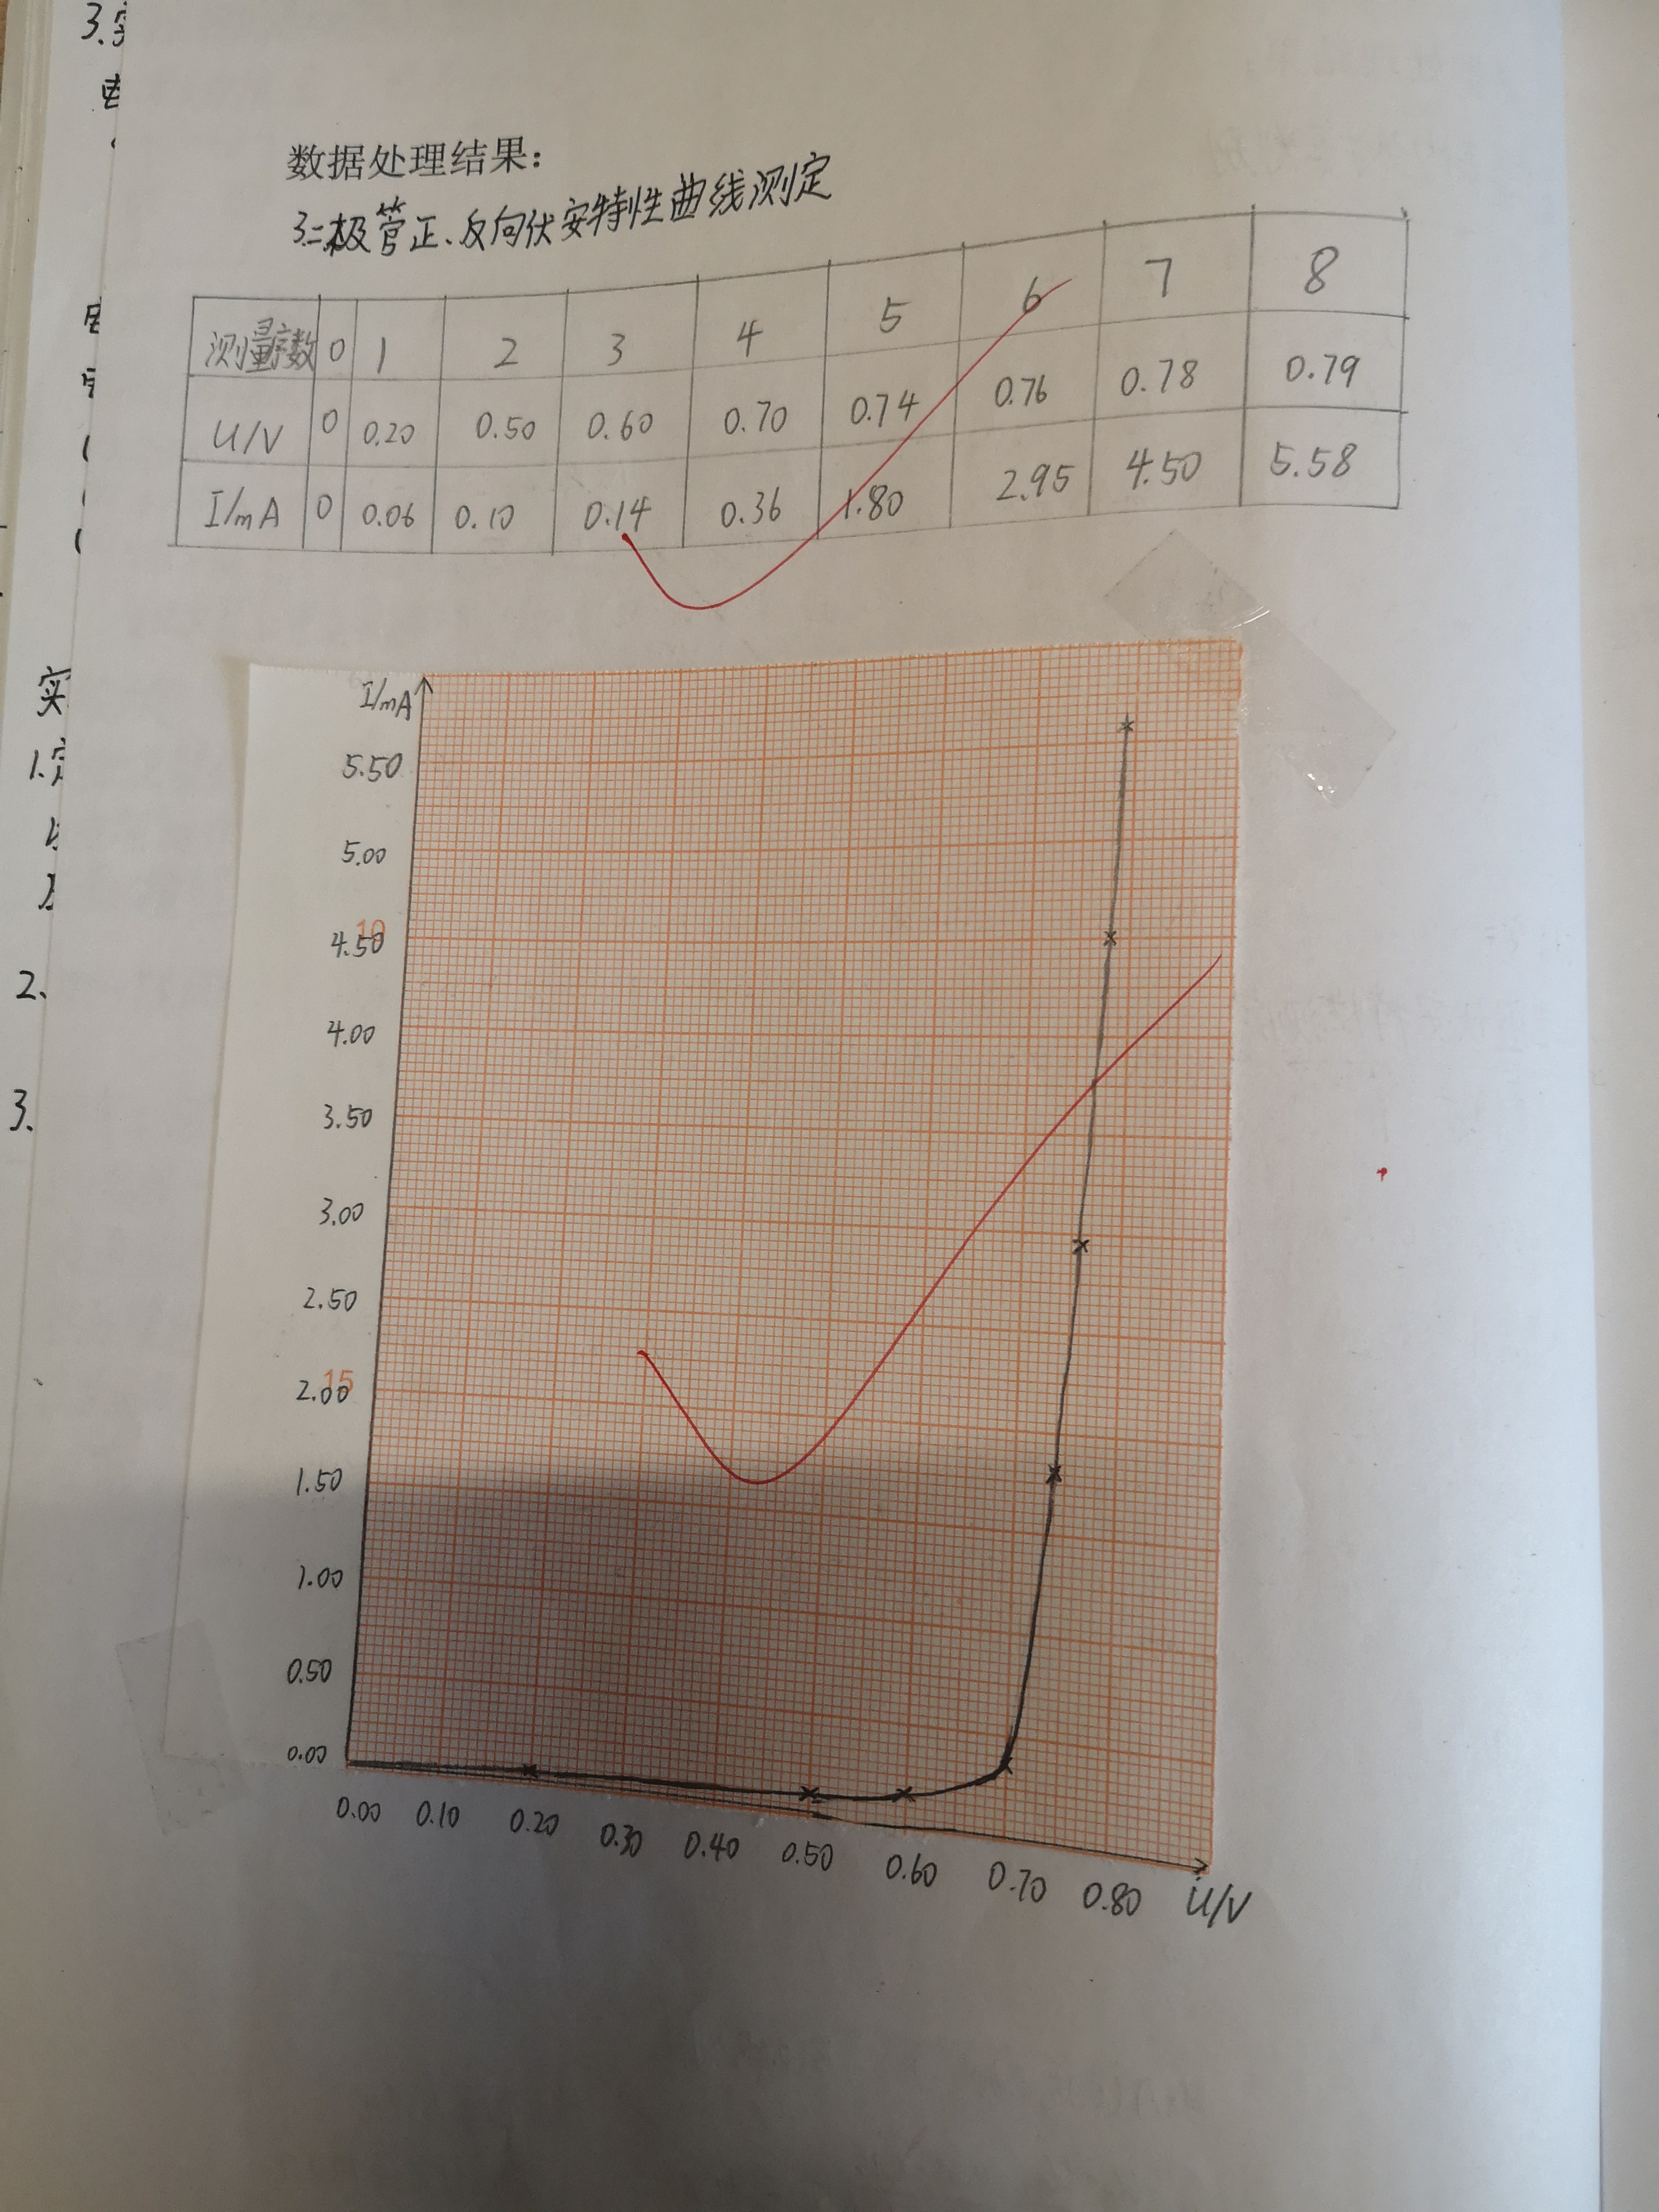 数据处理结果:
3.二极管正、反向伏安特性曲线测定
测量序数 0 1 2 3 4 5 6 7 8
U/V 0 0.20 0.50 0.60 0.70 0.74 0.76 0.78 0.79
I/mA 0 0.06 0.10 0.14 0.36 1.80 2.95 4.50 5.58
I/mA
5.50
5.00
10
4.50
4.00
3.50
3.00
2.50
15
2.00
1.50
1.00
0.50
0.00
0.00 0.10 0.20 0.30 0.40 0.50 0.60 0.70 0.80 U/V
3.
实
1.
2.
3.